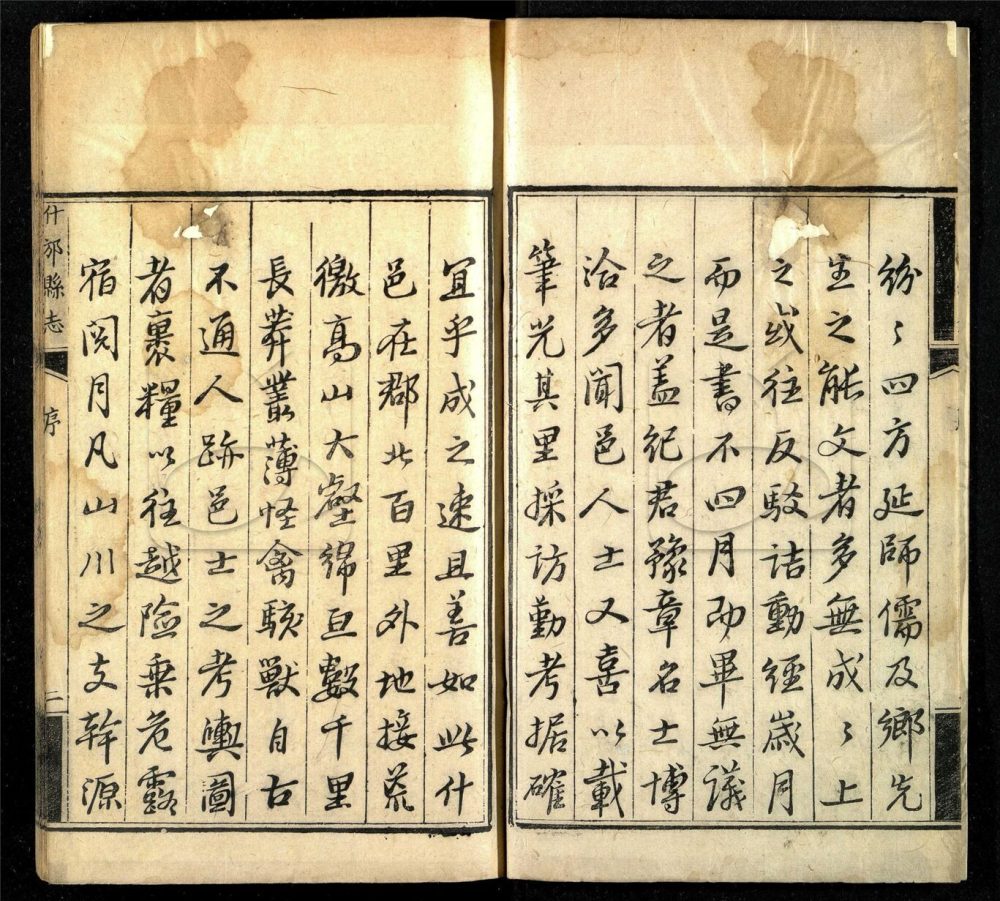 紛〻四方延師儒及鄉先
生之能文者多無成〻上
之或往反駁詰動經歲月
而是書不四月而畢無議
之者蓋紀君豫章名士博
洽多聞邑人士又喜以載
筆光其里採訪勤考据確
宜乎成之速且善如此什
邑在郡北百里外地接荒
徼高山大壑綿亘數千里
長莽叢薄怪禽駭獸自古
不通人跡邑士之考輿圖
者裹糧以往越險乘危露
宿閱月凡山川之支幹源
什邡縣志
序
二